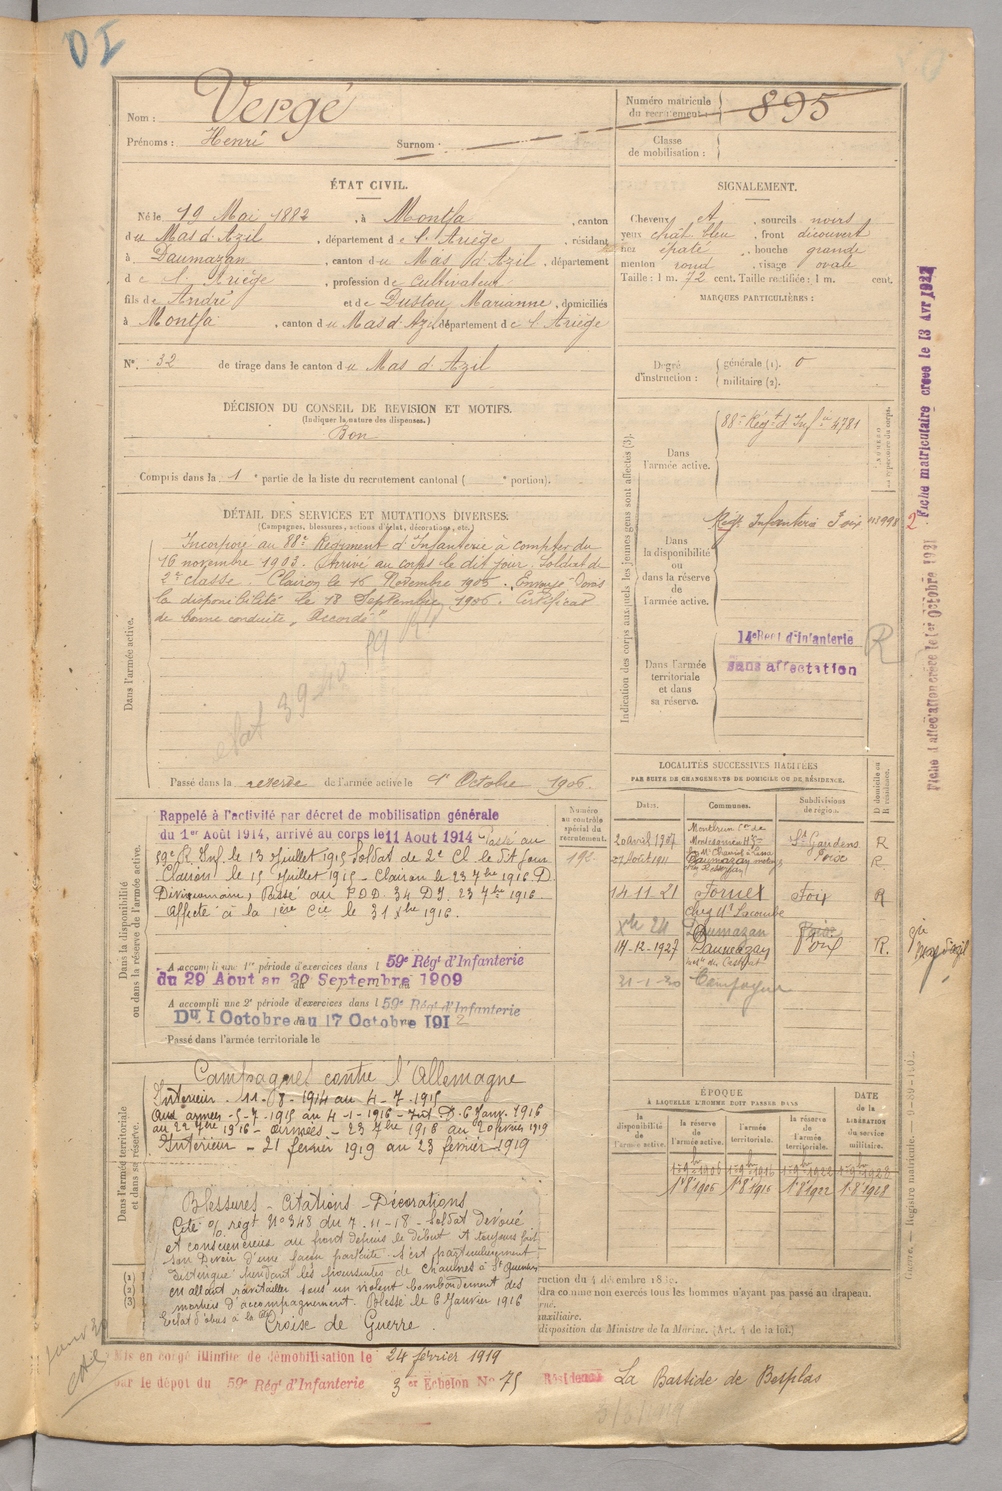 OI
Nom : Vergé
Prénoms : Henri Surnom :
Numéro matricule du recrutement : 895
Classe de mobilisation :
ÉTAT CIVIL.
Né le 19 Mai 1882, à Montfa, canton
du Mas d'Azil, département de l'Ariège, résidant
à Daumazan, canton du Mas d'Azil, département
de l'Ariège, profession de cultivateur
fils de André et de Dustou Marianne, domiciliés
à Montfa, canton du Mas d'Azil, département de l'Ariège
N° 32 de tirage dans le canton du Mas d'Azil
SIGNALEMENT.
Cheveux et, sourcils noirs
yeux chat bleu, front découvert
nez épaté, bouche grande
menton rond, visage ovale
Taille : 1 m. 72 cent. Taille rectifiée : 1 m. cent.
MARQUES PARTICULIÈRES :
Degré d'instruction : générale (1). 0
militaire (2).
DÉCISION DU CONSEIL DE REVISION ET MOTIFS.
(Indiquer la nature des dispenses.)
Bon
Compris dans la 1e partie de la liste du recrutement cantonal ( e portion).
DÉTAIL DES SERVICES ET MUTATIONS DIVERSES.
(Campagnes, blessures, actions d'éclat, décorations, etc.)
Dans l'armée active.
Incorporé au 88e Régiment d'Infanterie à compter du
16 novembre 1903. Arrivé au corps le dit jour, Soldat de
2e classe. Clairon le 16 Novembre 1905. Envoyé dans
la disponibilité le 18 Septembre 1906. Certificat
de bonne conduite "Accordé"
Passé dans la réserve de l'armée active le 1er Octobre 1906.
Indication des corps auxquels les jeunes gens sont affectés (3).
Dans l'armée active.
88e Régt d'Infie 4781
Dans la disponibilité ou dans la réserve de l'armée active.
Régt Infanterie Foix
Dans l'armée territoriale et dans sa réserve.
14e Regt d'Infanterie
sans affectation
R
Fiche matriculaire créée le 13 Avr 1922
Fiche d'affectation créée le 1er Octobre 1921
LOCALITÉS SUCCESSIVES HABITÉES
PAR SUITE DE CHANGEMENTS DE DOMICILE OU DE RÉSIDENCE.
Dates. Communes. Subdivisions de région. D domicile ou R résidence.
20 avril 1907 St Gaudens R
27 Août 1911 Daumazan Foix R
14.11.21 Fornex Foix R
chez Mr Lacombe
Xbre 24 Daumazan Foix
14-12-1927 Daumazan Foix R.
21-1-30 Campagne
Dans la disponibilité ou dans la réserve de l'armée active.
Numéro au contrôle spécial du recrutement.
Rappelé à l'activité par décret de mobilisation générale
du 1er Août 1914, arrivé au corps le 11 Aout 1914 Passé au
59e R. Inf. le 13 Juillet 1915 Soldat de 2e Cl le dit jour
Clairon le 15 Juillet 1915 - Clairon le 23 7bre 1916 D
Divisionnaire, Passé au F.D.D. 34 D.I. 23 7bre 1916
Affecté à la 1ère Cie le 31 Xbre 1916.
A accompli une 1re période d'exercices dans l 59e Régt d'Infanterie
du 29 Aout au 20 Septembre 1909
A accompli une 2e période d'exercices dans l 59e Régt d'Infanterie
Du 1 Octobre au 17 Octobre 1912
Passé dans l'armée territoriale le
Dans l'armée territoriale et dans sa réserve.
Campagnes contre l'Allemagne
Intérieur - 11-08-1914 au 4-7-1915
Aux armées - 5-7-1915 au 4-1-1916 - Int D. 6 Janv. 1916
au 22 7bre 1916 - armées - 23 7bre 1916 au 20 février 1919
Intérieur - 21 février 1919 au 23 février 1919
ÉPOQUE
À LAQUELLE L'HOMME DOIT PASSER DANS
la disponibilité de l'armée active. la réserve de l'armée active. l'armée territoriale. la réserve de l'armée territoriale. DATE de la LIBÉRATION du service militaire.
1er 9br 1906 1er 9br 1916 1er 9br 1922 1er 9br 1928
1er 8bre 1906 1er 8 1916 1er 8 1922 1.8 1928
Blessures - Citations - Décorations
Cité O/ régt N° 348 du 7-11-18 - Soldat dévoué
et consciencieux au front depuis le début. A toujours fait
son devoir d'une façon parfaite. S'est particulièrement
distingué pendant les poursuites de Chaulnes à St Quentin
en allant ravitailler sous un violent bombardement des
mortiers d'accompagnement. Blessé le 6 Janvier 1916
Eclat d'obus à la
Croix de Guerre.
disposition du Ministre de la Marine. (Art. 4 de la loi.)
Mis en congé illimité de démobilisation le 24 février 1919
par le dépôt du 59e Régt d'Infanterie 3er Echelon N° 75 Résidence La Bastide de Besplas